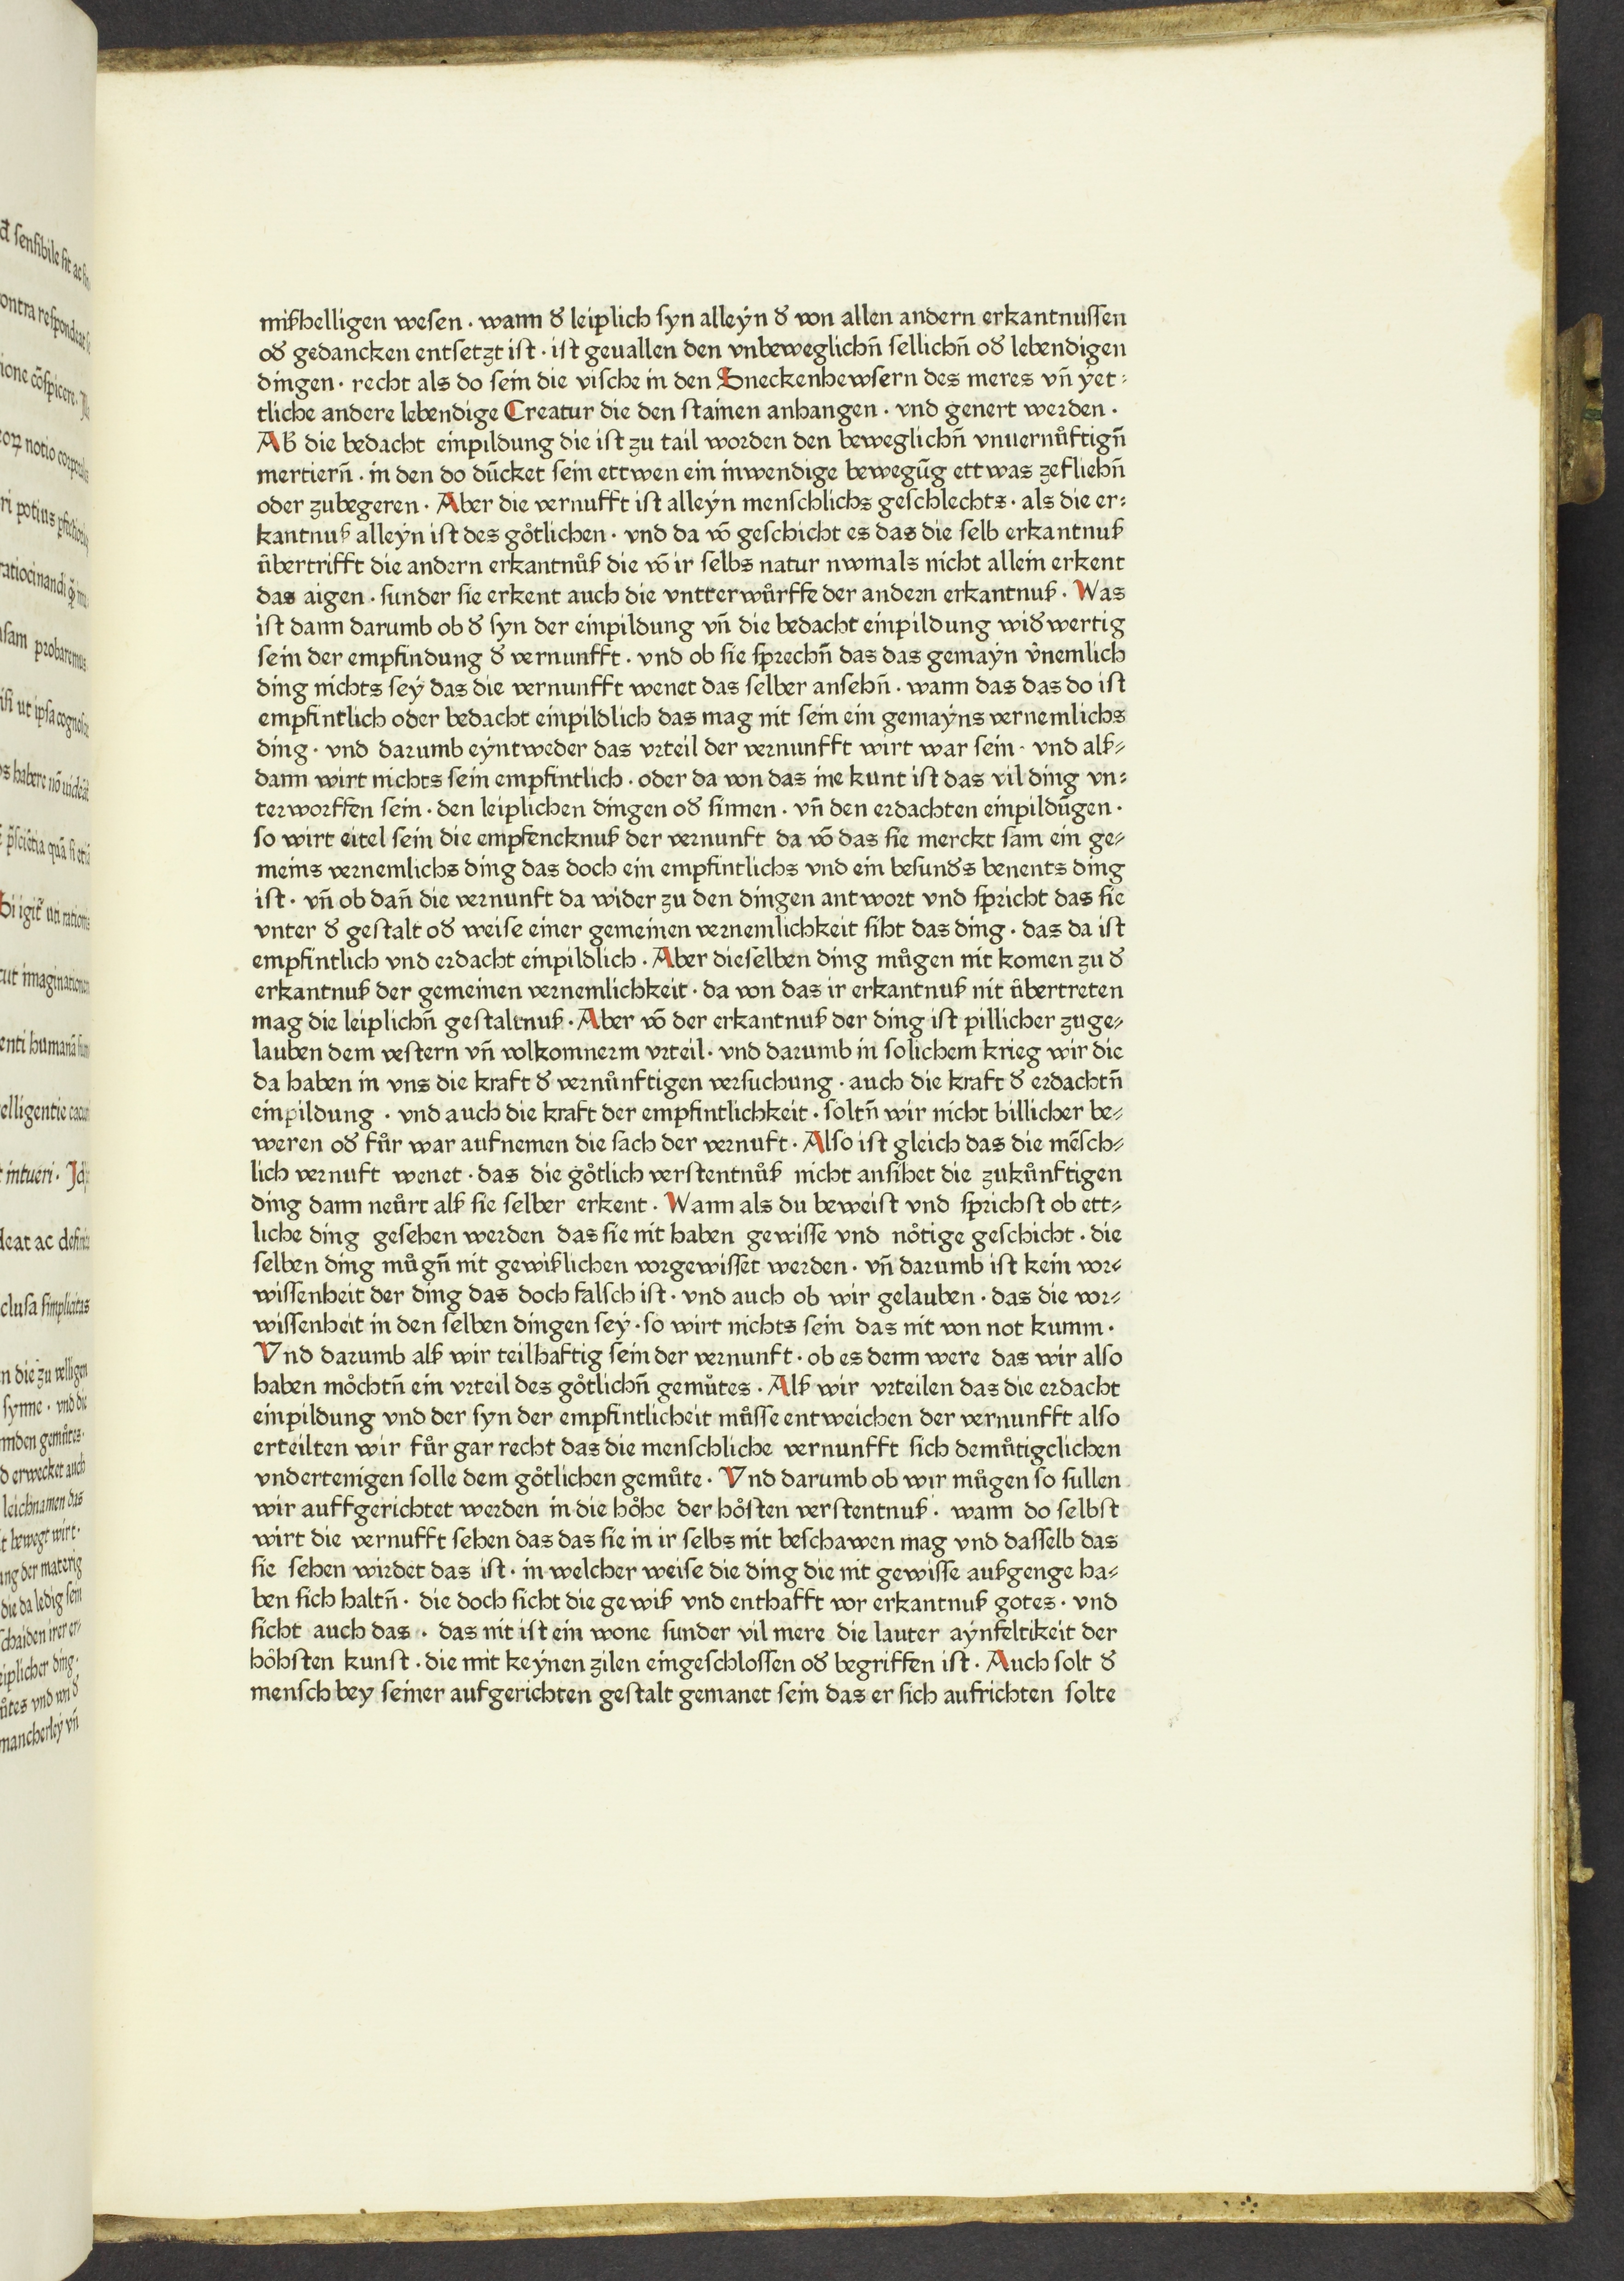 mißhelligen wesen · wann ꝺ̛ leiplich syn alleÿn ꝺ̛ von allen andern erkantnussen
oꝺ̛ gedancken entsetzt ist · ist geuallen den vnbeweglichn̄ sellichn̄ oꝺ̛ lebendigen
dingen · recht als do sein die vische in den Sneckenhewsern des meres vn̄ ÿet-
tliche andere lebendige Creatur die den stainen anhangen · vnd genert werden ·
Ab die bedacht einpildung die ist zu tail worden den beweglichn̄ vnuernůftign̄
mertiern̄ · in den do dūcket sein ettwen ein inwendige bewegūg ettwas zefliehn̄
oder zubegeren · Aber die vernufft ist alleÿn menschlichs geschlechts · als die er-
kantnuß alleÿn ist des gőtlichen · vnd da vō geschicht es das die selb erkantnuß
ůbertrifft die andern erkantnůß die vō ir selbs natur nwmals nicht allein erkent
das aigen · sunder sie erkent auch die vntterwůrffe der andern erkantnuß · Was
ist dann darumb ob ꝺ̛ syn der einpildung vn̄ die bedacht einpildung wiꝺ̛wertig
sein der empfindung ꝺ̛ vernunfft · vnd ob sie sprechn̄ das das gemaÿn v̓nemlich
ding nichts seÿ das die vernunfft wenet das selber ansehn̄ · wann das das do ist
empfintlich oder bedacht einpildlich das mag nit sein ein gemaÿns vernemlichs
ding · vnd darumb eÿntweder das vrteil der vernunfft wirt war sein · vnd alß-
dann wirt nichts sein empfintlich · oder da von das ine kunt ist das vil ding vn-
terworffen sein · den leiplichen dingen oꝺ̛ sinnen · vn̄ den erdachten einpildūgen ·
so wirt eitel sein die empfencknuß der vernunft da vō das sie merckt sam ein ge-
meins vernemlichs ding das doch ein empfintlichs vnd ein besunꝺ̛s benents ding
ist · vn̄ ob dan̄ die vernunft da wider zu den dingen antwort vnd spricht das sie
vnter ꝺ̛ gestalt oꝺ̛ weise einer gemeinen vernemlichkeit siht das ding · das da ist
empfintlich vnd erdacht einpildlich · Aber dieselben ding můgen nit komen zu ꝺ̛
erkantnuß der gemeinen vernemlichkeit · da von das ir erkantnuß nit ůbertreten
mag die leiplichn̄ gestaltnuß · Aber vō der erkantnuß der ding ist pillicher zuge-
lauben dem vestern vn̄ volkomnerm vrteil · vnd darumb in solichem krieg wir die
da haben in vns die kraft ꝺ̛ vernůnftigen versuchung · auch die kraft ꝺ̛ erdachtn̄
einpildung · vnd auch die kraft der empfintlichkeit · soltn̄ wir nicht billicher be-
weren oꝺ̛ fůr war aufnemen die sach der vernuft · Also ist gleich das die mēsch-
lich vernuft wenet · das die gőtlich verstentnůß nicht ansihet die zukůnftigen
ding dann neůrt alß sie selber erkent · Wann als du beweist vnd sprichst ob ett-
liche ding gesehen werden das sie nit haben gewisse vnd nőtige geschicht · die
selben ding můgn̄ nit gewißlichen vorgewisset werden · vn̄ darumb ist kein vor-
wissenheit der ding das doch falsch ist · vnd auch ob wir gelauben · das die vor-
wissenheit in den selben dingen seÿ · so wirt nichts sein das nit von not kumm ·
Vnd darumb alß wir teilhaftig sein der vernunft · ob es denn were das wir also
haben mőchtn̄ ein vrteil des gőtlichn̄ gemůtes · Alß wir vrteilen das die erdacht
einpildung vnd der syn der empfintlicheit můsse entweichen der vernunfft also
erteilten wir fůr gar recht das die menschliche vernunfft sich demůtigclichen
vndertenigen solle dem gőtlichen gemůte · Vnd darumb ob wir můgen so sullen
wir auffgerichtet werden in die hőhe der hősten verstentnuß · wann do selbst
wirt die vernufft sehen das das sie in ir selbs nit beschawen mag vnd dasselb das
sie sehen wirdet das ist · in welcher weise die ding die nit gewisse außgenge ha-
ben sich haltn̄ · die doch sicht die gewiß vnd enthafft vor erkantnuß gotes · vnd
sicht auch das · das nit ist ein wone sunder vil mere die lauter aÿnfeltikeit der
hőhsten kunst · die mit keÿnen zilen eingeschlossen oꝺ̛ begriffen ist · Auch solt ꝺ̛
mensch bey seiner aufgerichten gestalt gemanet sein das er sich aufrichten solte